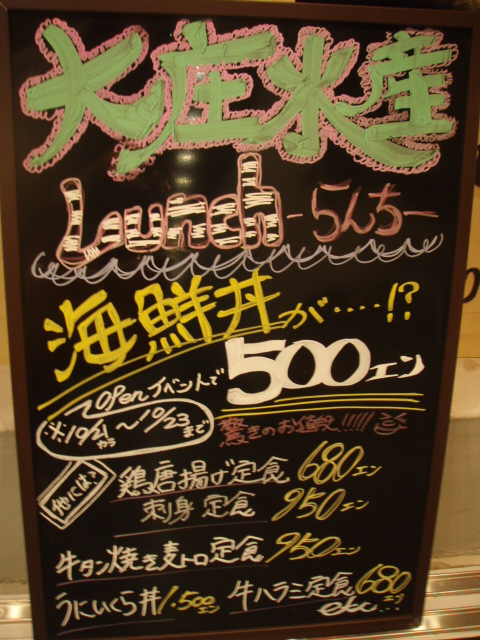 大庄水産
Lunch -らんちー
海鮮丼が....!?
Openイベントで 500エン
※10/21から〜10/23まで
驚きのお値段!!!!!
他には?
鶏唐揚げ定食 680エン
刺身定食 950エン
牛タン焼き麦トロ定食 950エン
うにいくら丼 1.500エン 牛ハラミ定食 680エン
etc...